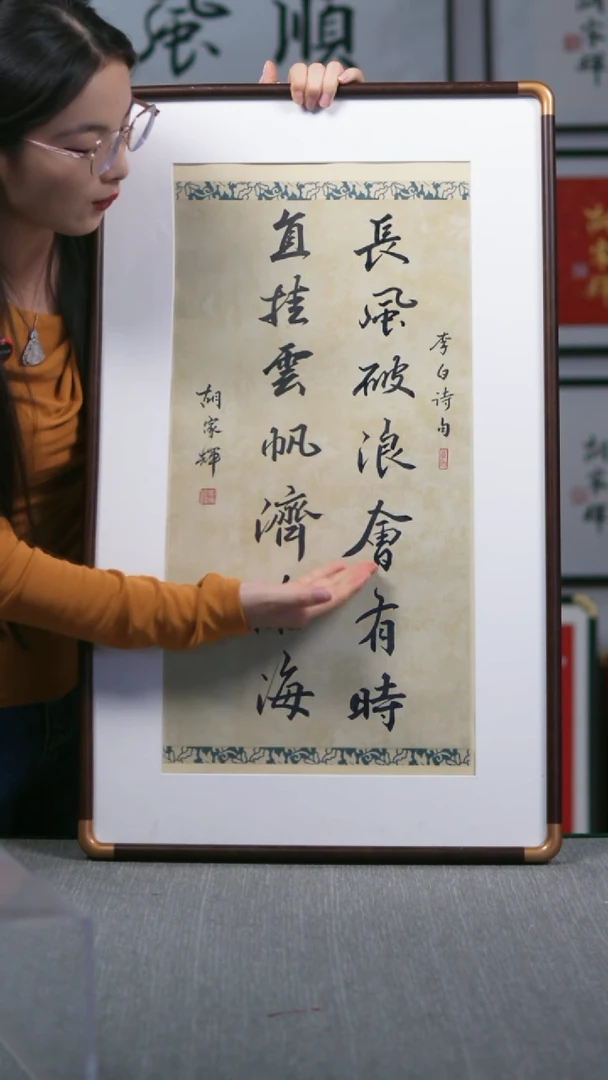 風順
李白诗句
長風破浪會有時
直挂雲帆濟海
胡家輝